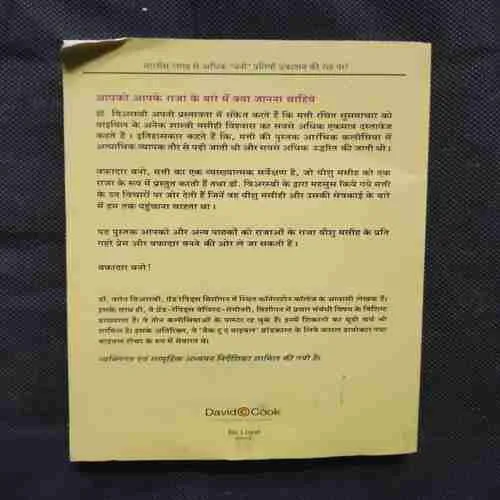 चालीस लाख से अधिक "बनो" प्रतियाँ प्रकाशन की राह पर!
आपको आपके राजा के बारे में क्या जानना चाहिये
डॉ. विअरस्बी अपनी प्रस्तावना में संकेत करते हैं कि मत्ती रचित सुसमाचार को
बाइबिल के अनेक शास्त्री मसीही विश्वास का सबसे अधिक एकमात्र दस्तावेज
कहते हैं। इतिहासकार कहते हैं कि, मत्ती की पुस्तक आरंभिक कलीसिया में
अत्याधिक व्यापक तौर से पढ़ी जाती थी और सबसे अधिक उद्धरित की जाती थी।
वफ़ादार बनो, मत्ती का एक व्याख्यात्मक सर्वेक्षण है, जो यीशु मसीह को एक
राजा के रूप में प्रस्तुत करती है तथा डॉ. विअरस्बी के द्वारा महसूस किये गये मत्ती
के उन विचारों पर जोर देती है जिनें वह यीशु मसीही और उसकी सेवकाई के बारे
में हम तक पहुंचाना चाहता था।
यह पुस्तक आपको और अन्य पाठकों को राजाओं के राजा यीशु मसीह के प्रति
गहरे प्रेम और वफ़ादार बनने की ओर ले जा सकती है।
वफ़ादार बनो!
डॉ. वारेन विअरस्बी, ग्रैंड रेपिड्स मिशीगन में स्थित कॉर्नरस्टोन कॉलेज के आवासी लेखक हैं।
इसके साथ ही, वे ग्रैंड-रेपिड्स बेप्टिस्ट-सेमीनरी, मिशीगन में प्रचार संबंधी विषय के विशिष्ट
प्राध्यापक हैं। वे तीन कलीसियाओं के पास्टर रह चुके हैं। इनमें शिकागो का मूडी चर्च भी
शामिल है। इसके अतिरिक्त, वे "बैक टू द बाइबल" ब्रॉडकास्ट के लिये जनरल डायरेक्टर तथा
बाइबल टीचर के रूप में सेवारत थे।
व्यक्तिगत एवं सामूहिक अध्ययन निर्देशिका शामिल की गयी है।
David C Cook
Be Loyal